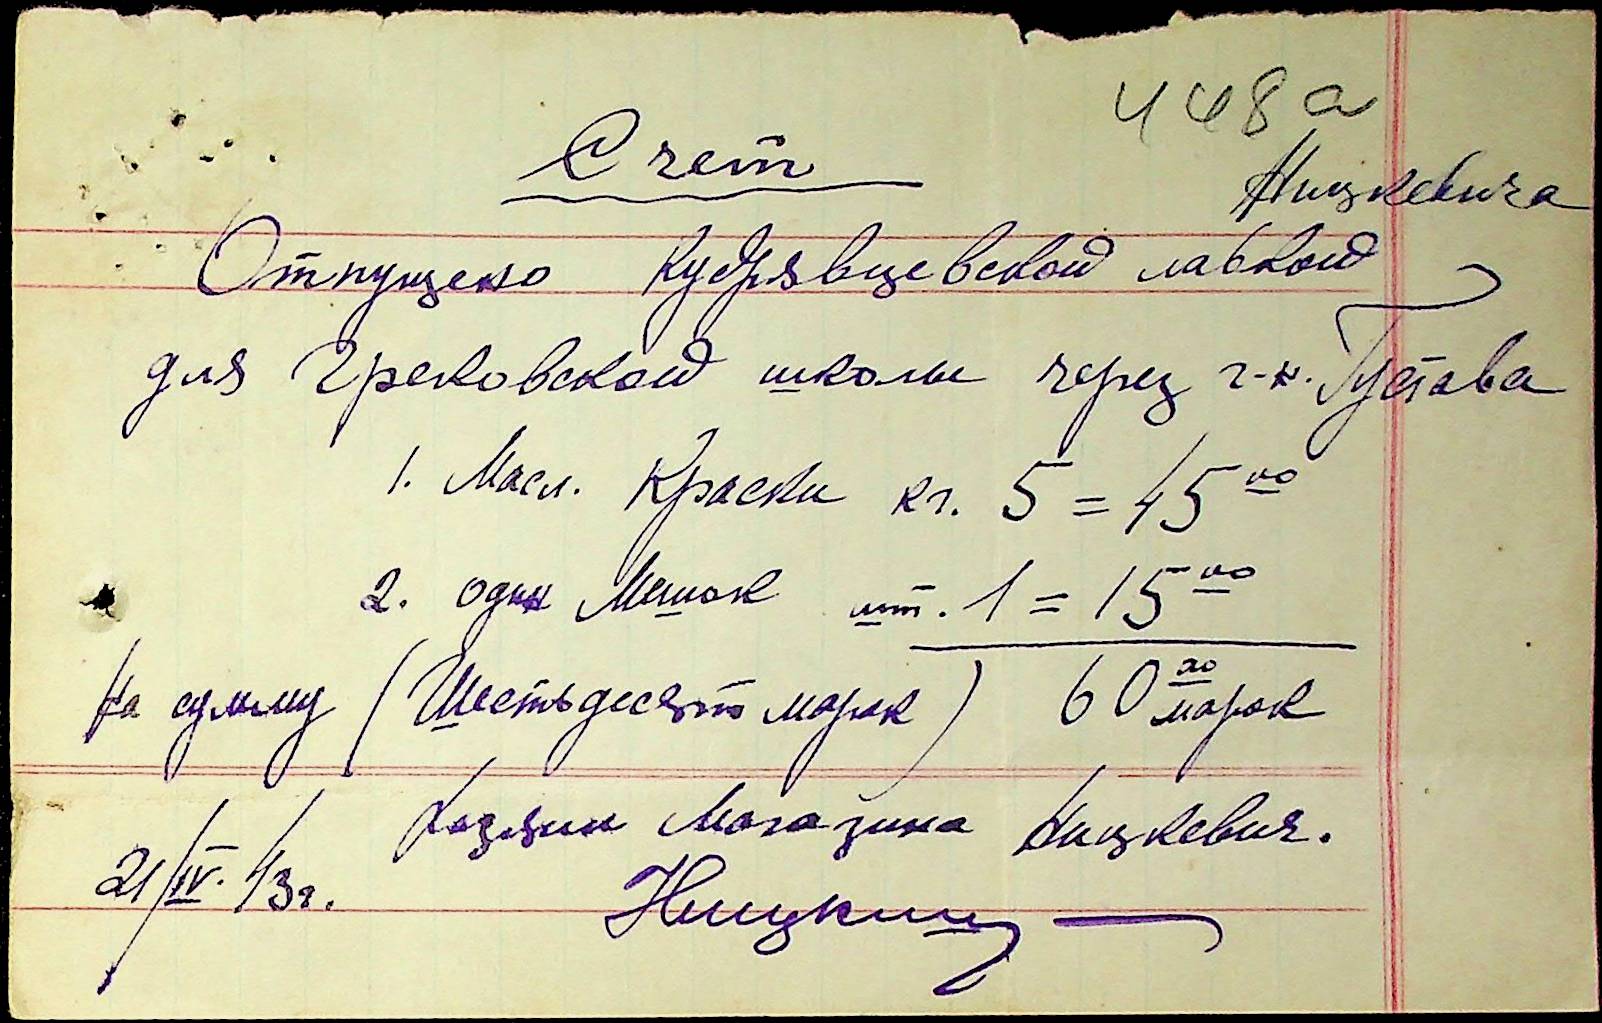 448а
Счет
Ницкевича
Отпущено Кудрявцевской лавкой
для Грековской школы через г-н. Густава
1. Масл. Краски кг. 5 = 45 00
2. один Мешок шт. 1 = 15 00
На сумму (Шестьдесят марок) 60 00 марок
Хозяин Магазина Ницкевич.
21/IV. 43г.